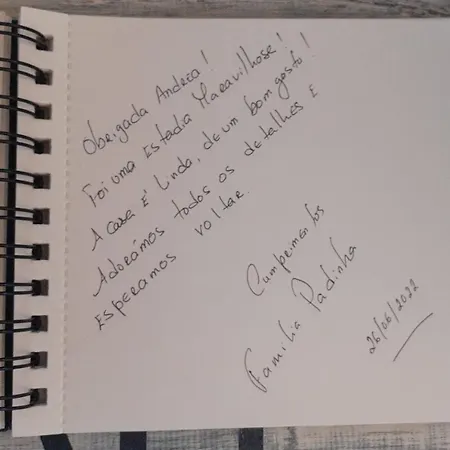 Obrigada Andreia!
Foi uma Estadia Maravilhosa!
A casa É linda, de um bom gosto!
Adorámos todos os detalhes E
Esperamos voltar.
Cumprimentos
Família Padinha
26/06/2022